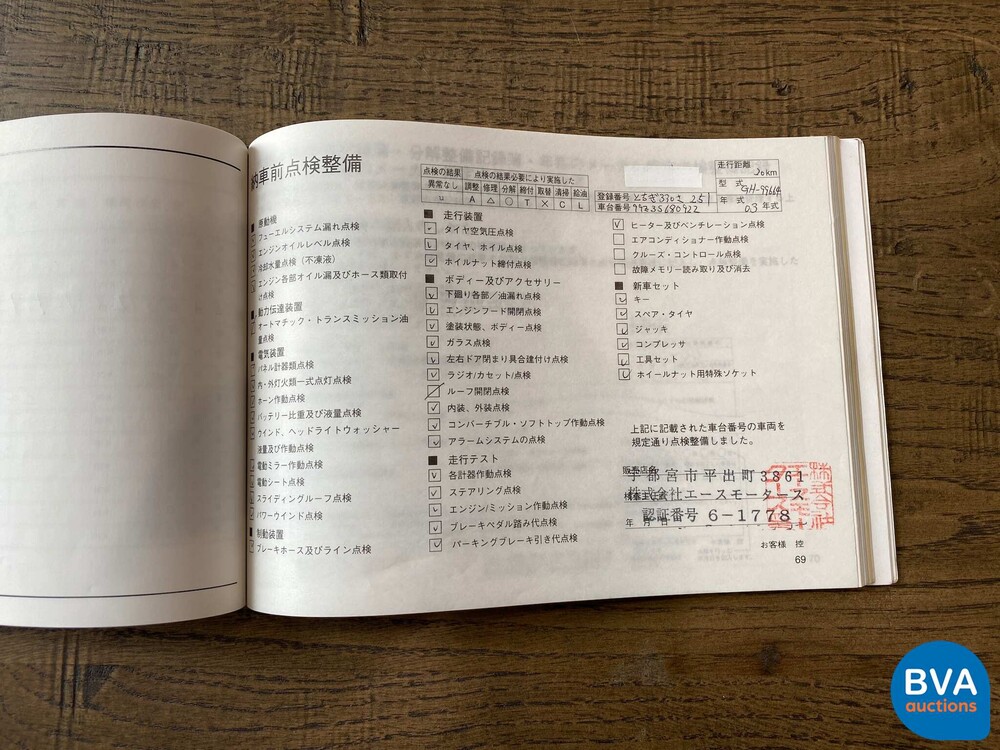 納車前点検整備
点検の結果 点検の結果必要により実施した
異常なし 調整 修理 分解 締付 取替 清掃 給油
レ A △ ○ T × C L
走行距離
20km
登録番号 とちぎ330さ251
型式 GH-99664
車台番号
年式 03年式
■ 原動機
フューエルシステム漏れ点検
エンジンオイルレベル点検
冷却水量点検（不凍液）
エンジン各部オイル漏及びホース類取付
け点検
■ 動力伝達装置
オートマチック・トランスミッション油
量点検
■ 電気装置
パネル計器類点検
内・外灯火類一式点灯点検
ホーン作動点検
バッテリー比重及び液量点検
ウインド、ヘッドライトウォッシャー
液量及び作動点検
電動ミラー作動点検
電動シート点検
スライディングルーフ点検
パワーウインド点検
■ 制動装置
ブレーキホース及びライン点検
■ 走行装置
タイヤ空気圧点検
タイヤ、ホイル点検
ホイルナット締付点検
■ ボディー及びアクセサリー
下廻り各部／油漏れ点検
エンジンフード開閉点検
塗装状態、ボディー点検
ガラス点検
左右ドア閉まり具合建付け点検
ラジオ/カセット/点検
ルーフ開閉点検
内装、外装点検
コンバーチブル・ソフトトップ作動点検
アラームシステムの点検
■ 走行テスト
各計器作動点検
ステアリング点検
エンジン/ミッション作動点検
ブレーキペダル踏み代点検
パーキングブレーキ引き代点検
ヒーター及びベンチレーション点検
エアコンディショナー作動点検
クルーズ・コントロール点検
故障メモリー読み取り及び消去
■ 新車セット
キー
スペア・タイヤ
ジャッキ
コンプレッサ
工具セット
ホイールナット用特殊ソケット
上記に記載された車台番号の車両を
規定通り点検整備しました。
販売店名
宇都宮市平出町3861
株式会社エースモータース
認証番号 6-1778
年 月
お客様 控
69
BVA
auctions